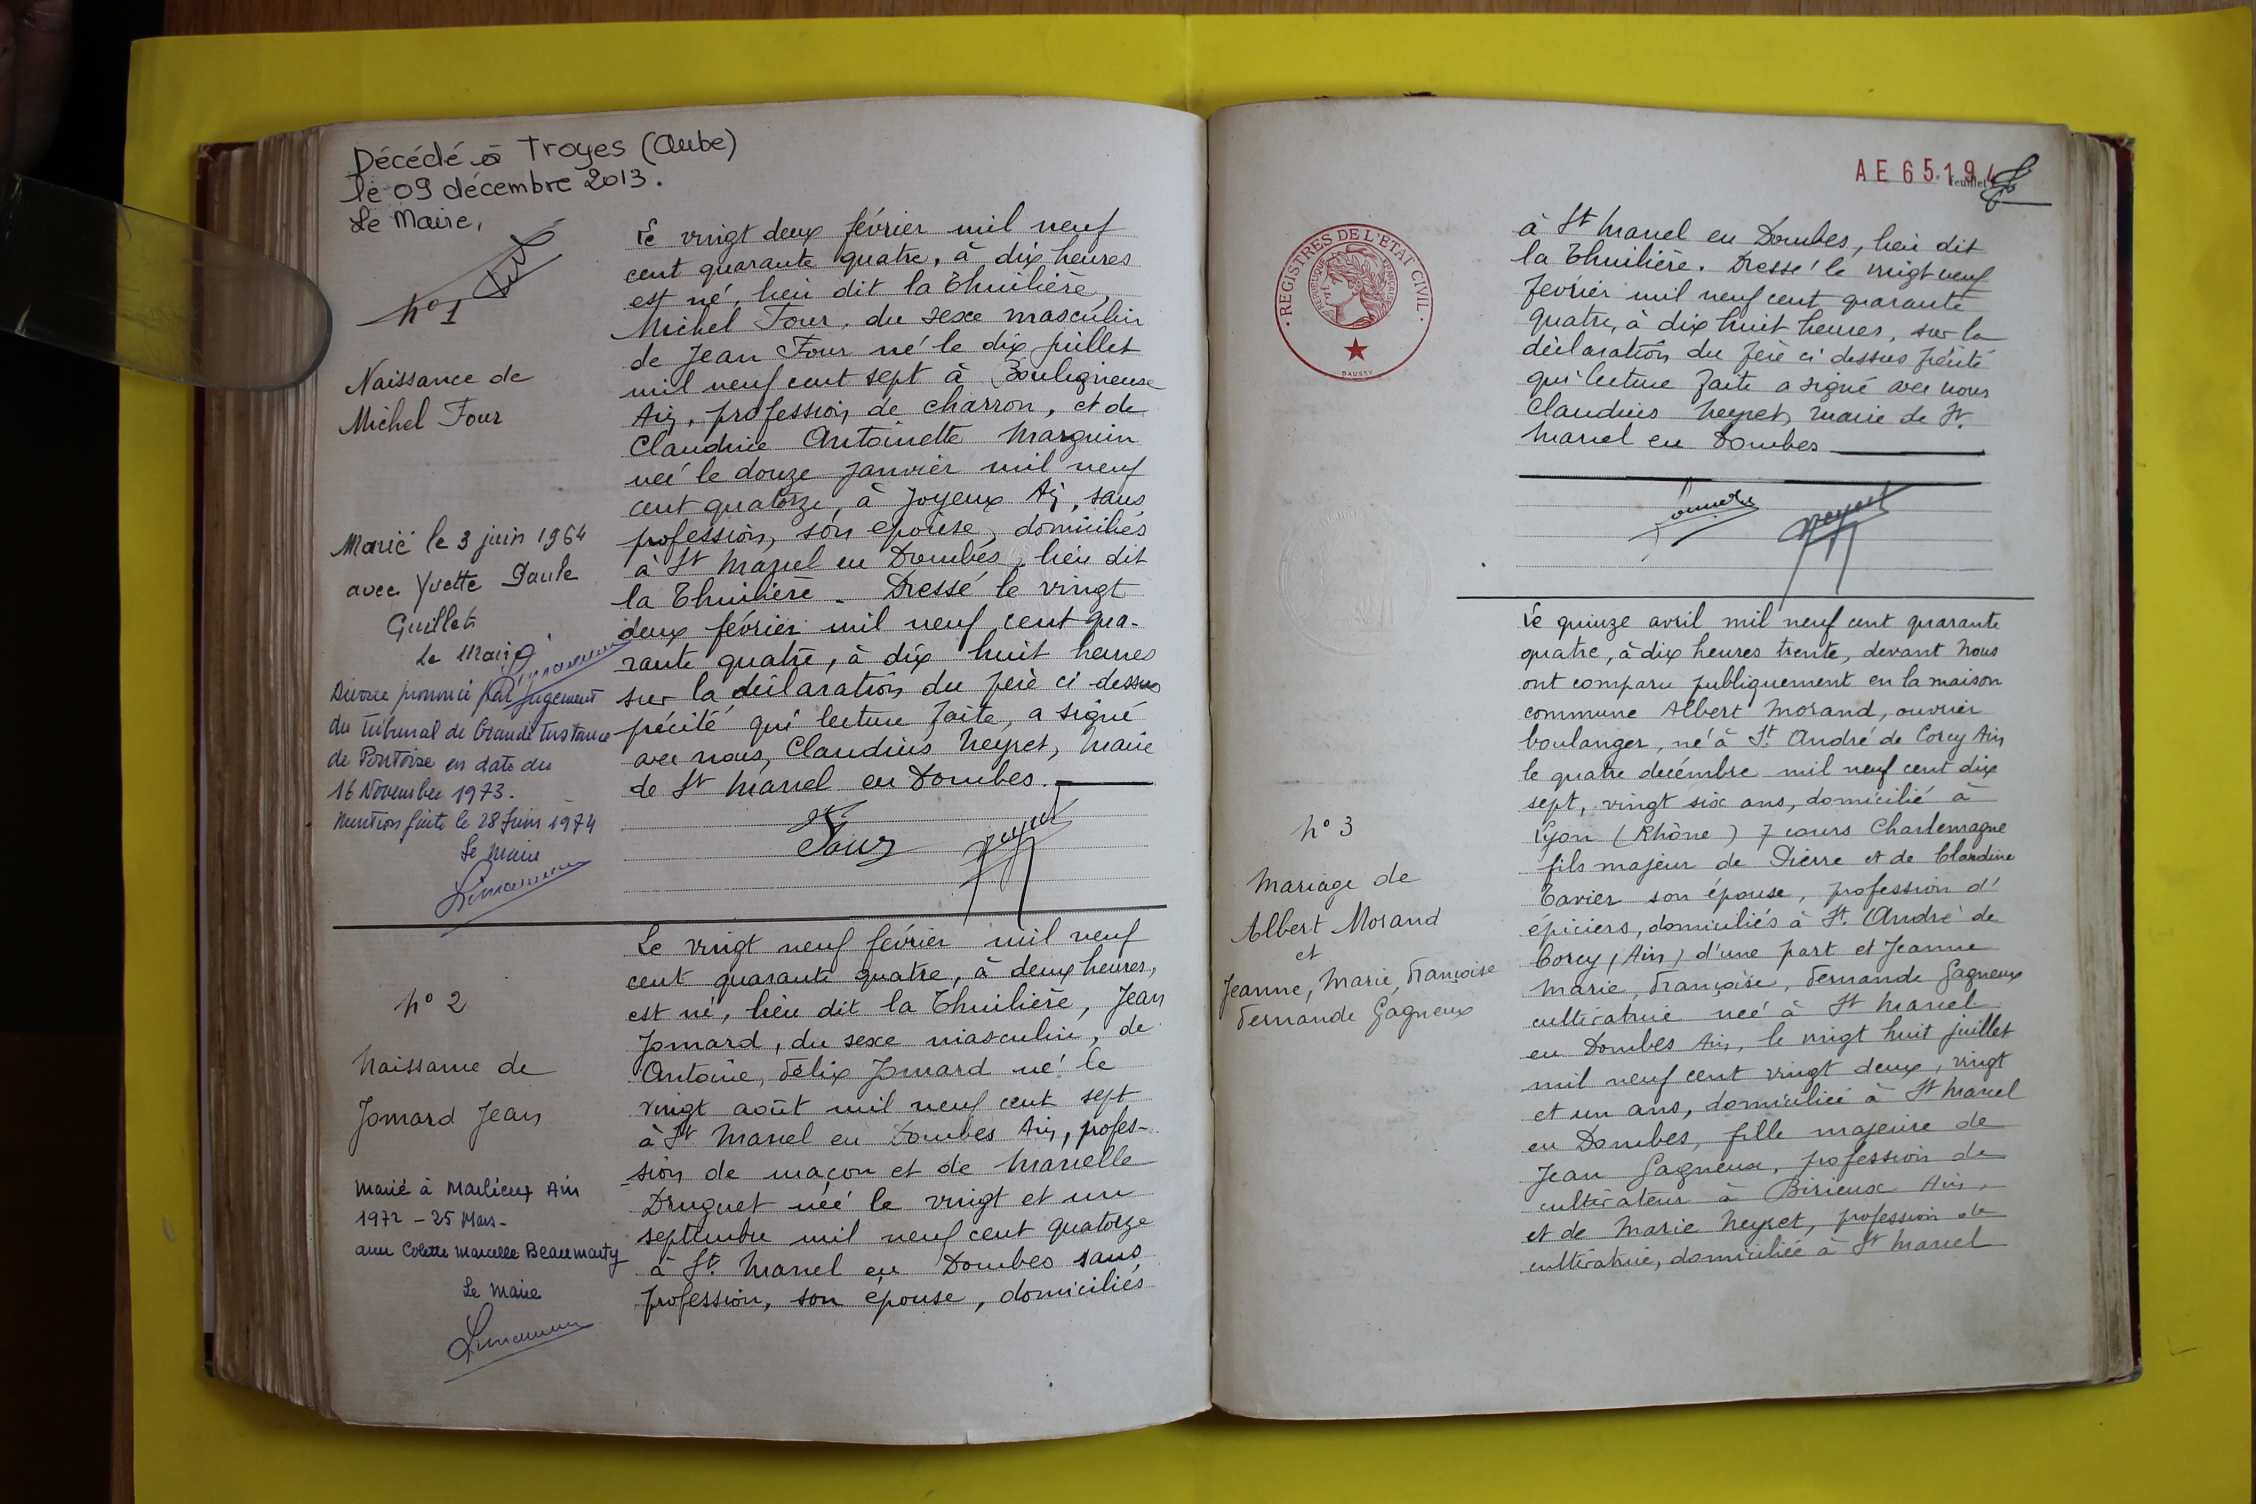 Décédé à Troyes (Aube)
le 09 décembre 2013.
Le Maire,
n° 1
Naissance de
Michel Four
Marié le 3 juin 1964
avec Yvette Paule
Guillet
Le Maire
Divorce prononcé par jugement
du Tribunal de Grande Instance
de Pontoise en date du
16 Novembre 1973.
Mention faite le 28 Juin 1974
Le Maire
Le vingt deux février mil neuf
cent quarante quatre, à dix heures
est né, lieu dit la Thuilière,
Michel Four, du sexe masculin
de Jean Four né le dix juillet
mil neuf cent sept à Bouligneux
Ain, profession de charron, et de
Claudine Antoinette Marguin
née le douze janvier mil neuf
cent quatorze, à Joyeux Ain, sans
profession, son epouse, domiciliés
à St Marcel en Dombes, lieu dit
la Thuilière. Dressé le vingt
deux février mil neuf cent qua-
rante quatre, à dix huit heures
sur la déclaration du père ci-dessus
précité qui lecture faite, a signé
avec nous, Claudius Neyret, Maire
de St Marcel en Dombes.
Four
Neyret
n° 2
Naissance de
Jomard Jean
Marié à Marlieux Ain
1972 - 25 Mars-
avec Colette Marcelle Beaumarty
Le Maire
Le vingt neuf février mil neuf
cent quarante quatre, à deux heures,
est né, lieu dit la Thuilière, Jean
Jomard, du sexe masculin, de
Antoine, Félix Jomard né le
vingt août mil neuf cent sept
à St Marcel en Dombes Ain, profes-
sion de maçon et de Marcelle
Druguet née le vingt et un
septembre mil neuf cent quatorze
à St. Marcel en Dombes sans
profession, son epouse, domiciliés
AE 65194
feuillet
REGISTRES DE L'ETAT CIVIL
REPUBLIQUE FRANÇAISE
DAUSSY
à St Marcel en Dombes, lieu dit
la Thuilière. Dressé le vingt neuf
février mil neuf cent quarante
quatre, à dix huit heures, sur la
déclaration du père ci dessus précité
qui lecture faite a signé avec nous
Claudius Neyret, Maire de St.
Marcel en Dombes
Jomard
Neyret
n° 3
Mariage de
Albert Morand
et
Jeanne, Marie, Françoise
Fernande Gagneux
Le quinze avril mil neuf cent quarante
quatre, à dix heures trente, devant Nous
ont comparu publiquement en la maison
commune Albert Morand, ouvrier
boulanger, né à St. André de Corcy Ain
le quatre décembre mil neuf cent dix
sept, vingt six ans, domicilié à
Lyon (Rhône) 7 cours Charlemagne
fils majeur de Pierre et de Claudine
Tavier son épouse, profession d'
épiciers, domiciliés à St. André de
Corcy (Ain) d'une part et Jeanne
Marie, Françoise, Fernande Gagneux
cultivatrice née à St Marcel
en Dombes Ain, le vingt huit juillet
mil neuf cent vingt deux, vingt
et un ans, domiciliée à St Marcel
en Dombes, fille majeure de
Jean Gagneux, profession de
cultivateur à Birieux Ain,
et de Marie Neyret, profession de
cultivatrice, domiciliée à St Marcel